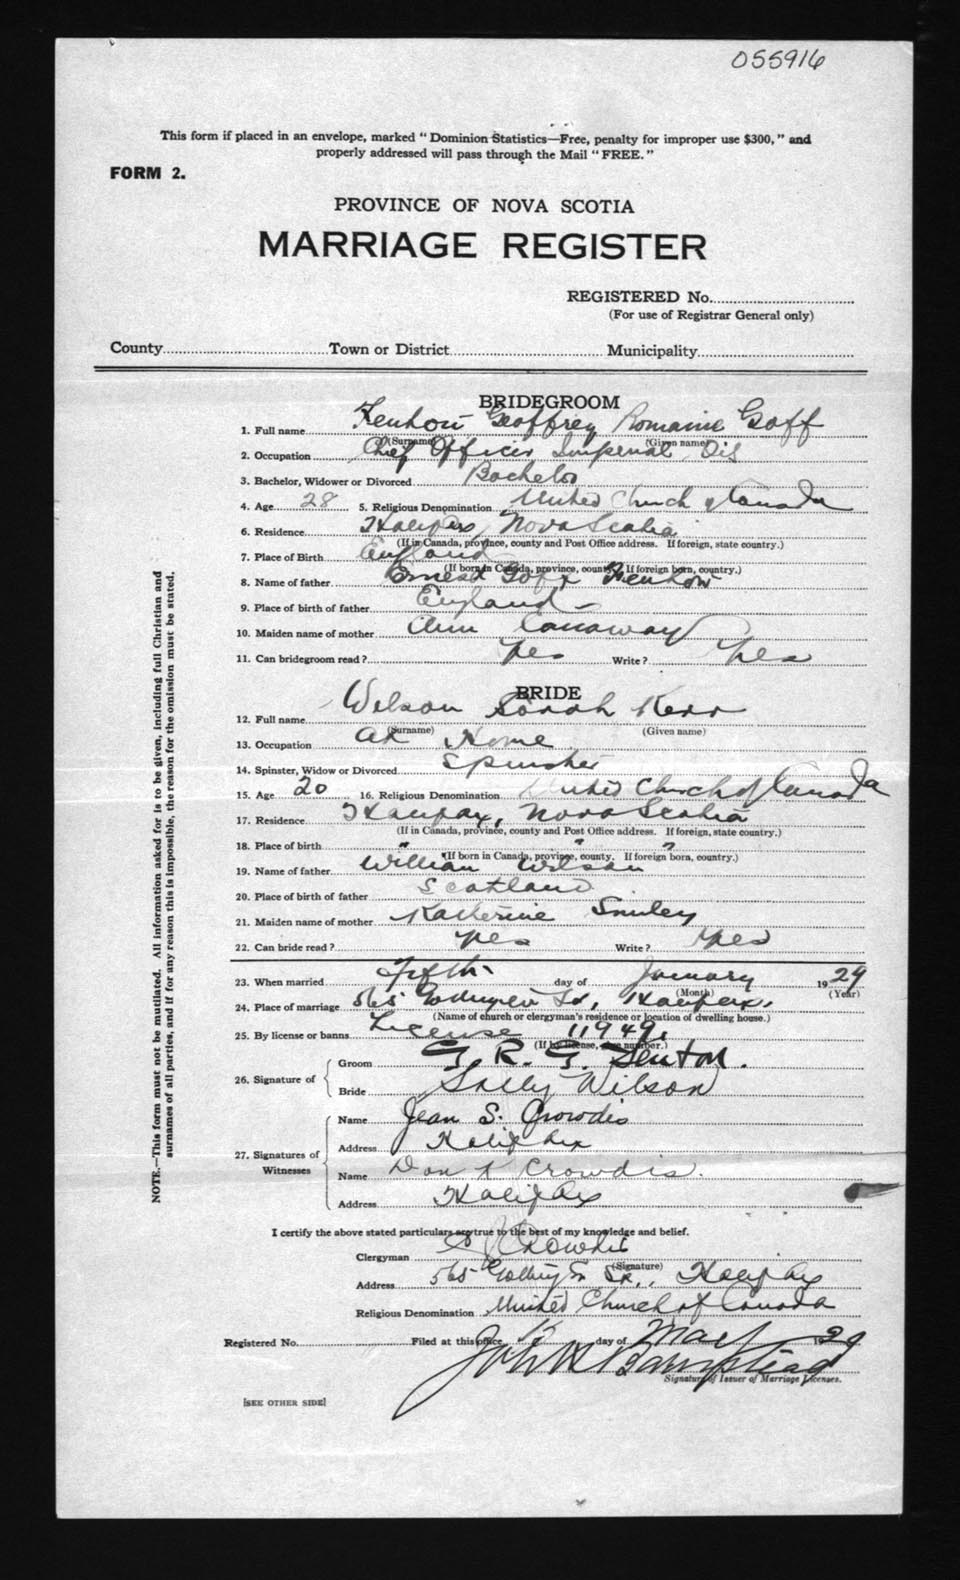 055916
This form if placed in an envelope, marked "Dominion Statistics—Free, penalty for improper use $300," and
properly addressed will pass through the Mail "FREE."
FORM 2.
PROVINCE OF NOVA SCOTIA
MARRIAGE REGISTER
REGISTERED No.
(For use of Registrar General only)
County Town or District Municipality
BRIDEGROOM
1. Full name Geoffrey Romaine Goff
(Surname) (Given name)
2. Occupation Chief Officer Imperial Oil
3. Bachelor, Widower or Divorced Bachelor
4. Age 28 5. Religious Denomination United Church of Canada
6. Residence Halifax, Nova Scotia
(If in Canada, province, county and Post Office address. If foreign, state country.)
7. Place of Birth England
(If born in Canada, province, county. If foreign born, country.)
8. Name of father Ernest Goff
9. Place of birth of father England
10. Maiden name of mother Ann
11. Can bridegroom read? Yes Write? Yes
BRIDE
12. Full name Wilson Sarah Kerr
(Surname) (Given name)
13. Occupation at Home
14. Spinster, Widow or Divorced Spinster
15. Age 20 16. Religious Denomination United Church of Canada
17. Residence Halifax, Nova Scotia
(If in Canada, province, county and Post Office address. If foreign, state country.)
18. Place of birth " " "
(If born in Canada, province, county. If foreign born, country.)
19. Name of father William Wilson
20. Place of birth of father Scotland
21. Maiden name of mother Katherine Smiley
22. Can bride read? Yes Write? Yes
23. When married Fifth day of January 1929
(Month) (Year)
24. Place of marriage 565 St, Halifax.
(Name of church or clergyman's residence or location of dwelling house.)
25. By license or banns License 11949.
(If by license, give number.)
26. Signature of
Groom G. R. G. Fenton.
Bride Sally Wilson
27. Signatures of Witnesses
Name Jean S. Crowdis
Address Halifax
Name Don K Crowdis.
Address Halifax
I certify the above stated particulars are true to the best of my knowledge and belief.
Clergyman Crowdis
(Signature)
Address 565 St., Halifax
Religious Denomination United Church of Canada
Registered No. Filed at this office day of May 1929
John Barnstead
Signature of Issuer of Marriage Licenses.
[SEE OTHER SIDE]
NOTE.—This form must not be mutilated. All information asked for is to be given, including full Christian and
surnames of all parties, and if for any reason this is impossible, the reason for the omission must be stated.